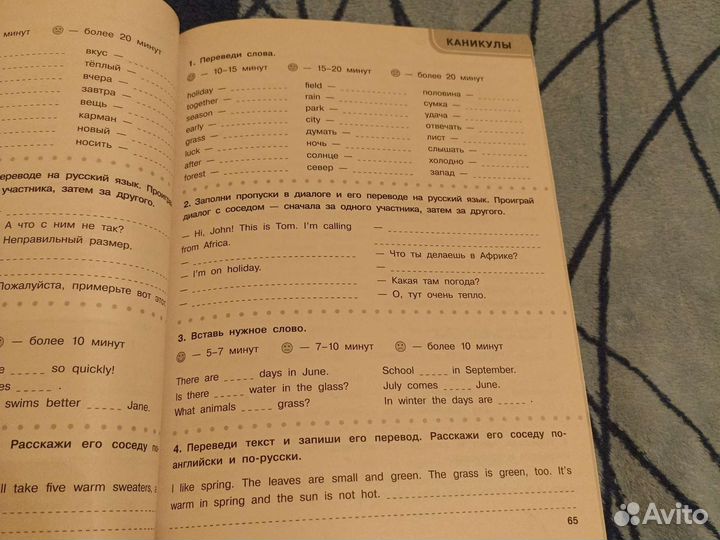 минут
— более 20 минут
вкус —
тёплый —
вчера —
завтра —
вещь —
карман —
новый —
носить —
переводе на русский язык. Проиграй
участника, затем за другого.
А что с ним не так?
Неправильный размер.
Пожалуйста, примерьте вот этот
— более 10 минут
so quickly!
swims better _____ Jane.
Расскажи его соседу по-
take five warm sweaters, a
КАНИКУЛЫ
1. Переведи слова.
— 10–15 минут — 15–20 минут — более 20 минут
holiday — field — половина —
together — rain — сумка —
season — park — удача —
early — city — отвечать —
grass — думать — лист —
luck — ночь — слышать —
after — солнце — холодно —
forest — север — запад —
2. Заполни пропуски в диалоге и его переводе на русский язык. Проиграй
диалог с соседом — сначала за одного участника, затем за другого.
— Hi, John! This is Tom. I'm calling —
from Africa.
— — Что ты делаешь в Африке?
— I'm on holiday. —
— — Какая там погода?
— — О, тут очень тепло.
3. Вставь нужное слово.
— 5–7 минут — 7–10 минут — более 10 минут
There are _____ days in June. School _____ in September.
Is there _____ water in the glass? July comes _____ June.
What animals _____ grass? In winter the days are _____ .
4. Переведи текст и запиши его перевод. Расскажи его соседу по-
английски и по-русски.
I like spring. The leaves are small and green. The grass is green, too. It's
warm in spring and the sun is not hot.
65
Avito